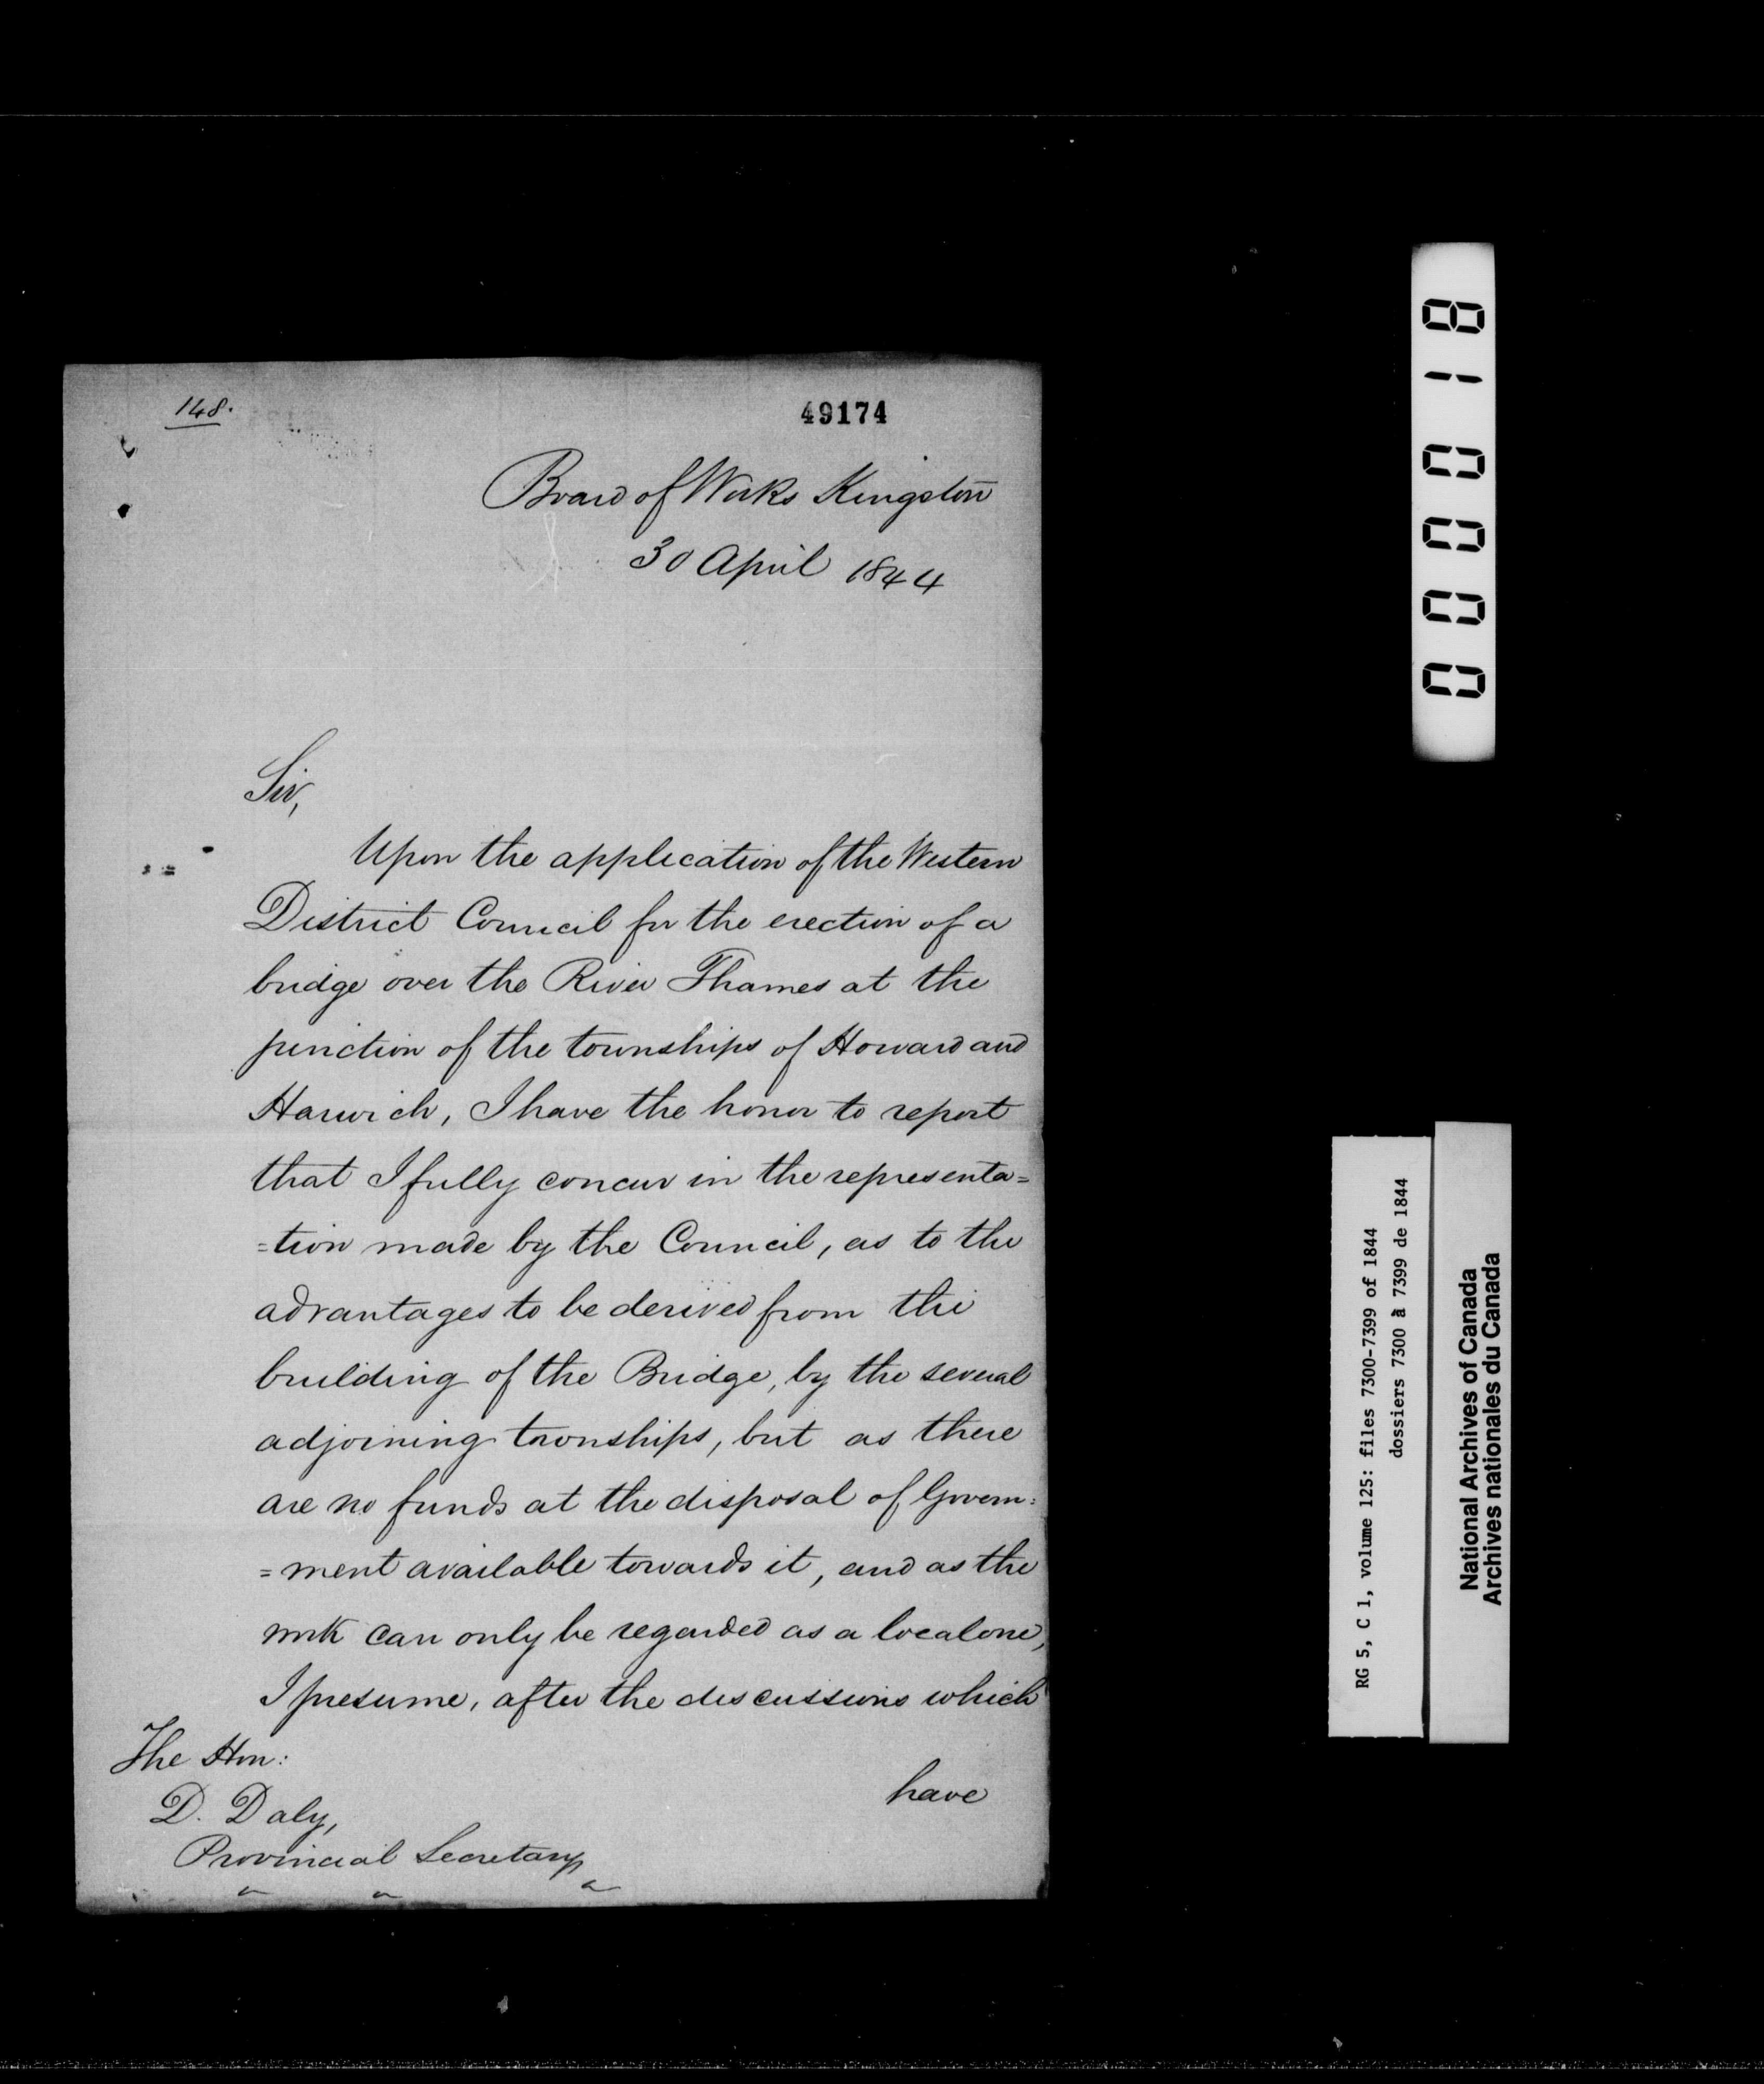 148.
49174
Board of Works Kingston
30 April 1844
Sir,
Upon the application of the Western
District Council for the erection of a
bridge over the River Thames at the
junction of the townships of Howard and
Harwich, I have the honor to report
that I fully concur in the representa=
=tion made by the Council, as to the
advantages to be derived from the
building of the Bridge, by the several
adjoining townships, but as there
are no funds at the disposal of Govern:
=ment available towards it, and as the
work can only be regarded as a local one,
I presume, after the discussions which
have
The Hon:
D. Daly,
Provincial Secretary
000018
RG 5, C 1, volume 125: files 7300-7399 of 1844
dossiers 7300 à 7399 de 1844
National Archives of Canada
Archives nationales du Canada